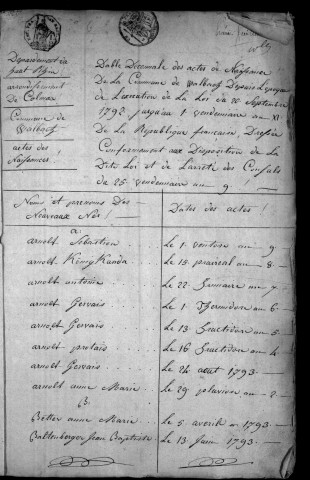 Département du
haut Rhin
arrondissement
De Colmar
Commune de
Walbach
actes des
Naissances !
Table Decennale des actes de Naissance
De la Commune de Walbach Depuis L'epoque
de L'execution de la Loi du 20 Septembre
1792 jusqu'au 1 vendemiaire an XI
De la Republique francaise Dressée
Conformement aux Disposition de la
Dite Loi et de L'arreté des Consuls
du 25 vendemiaire an 9 !
Noms et prenoms Des
Nouveaux Nés !
Dates des actes !
a.
arnolt Sebastien le 1 ventose an 9
arnolt Rémy le 15 prairial an 8
arnolt antoine le 22 frimaire an 7
arnolt Gervais le 1 Thermidor an 6
arnolt Gervais le 13 fructidor an 5
arnolt protais le 16 fructidor an 4
arnolt Gervais le 24 aout 1793
arnolt anne Marie le 29 pluviose an 2
B.
Better anne Marie le 5 avril 1793
Baltenberger Jean Baptiste le 13 Juin 1793